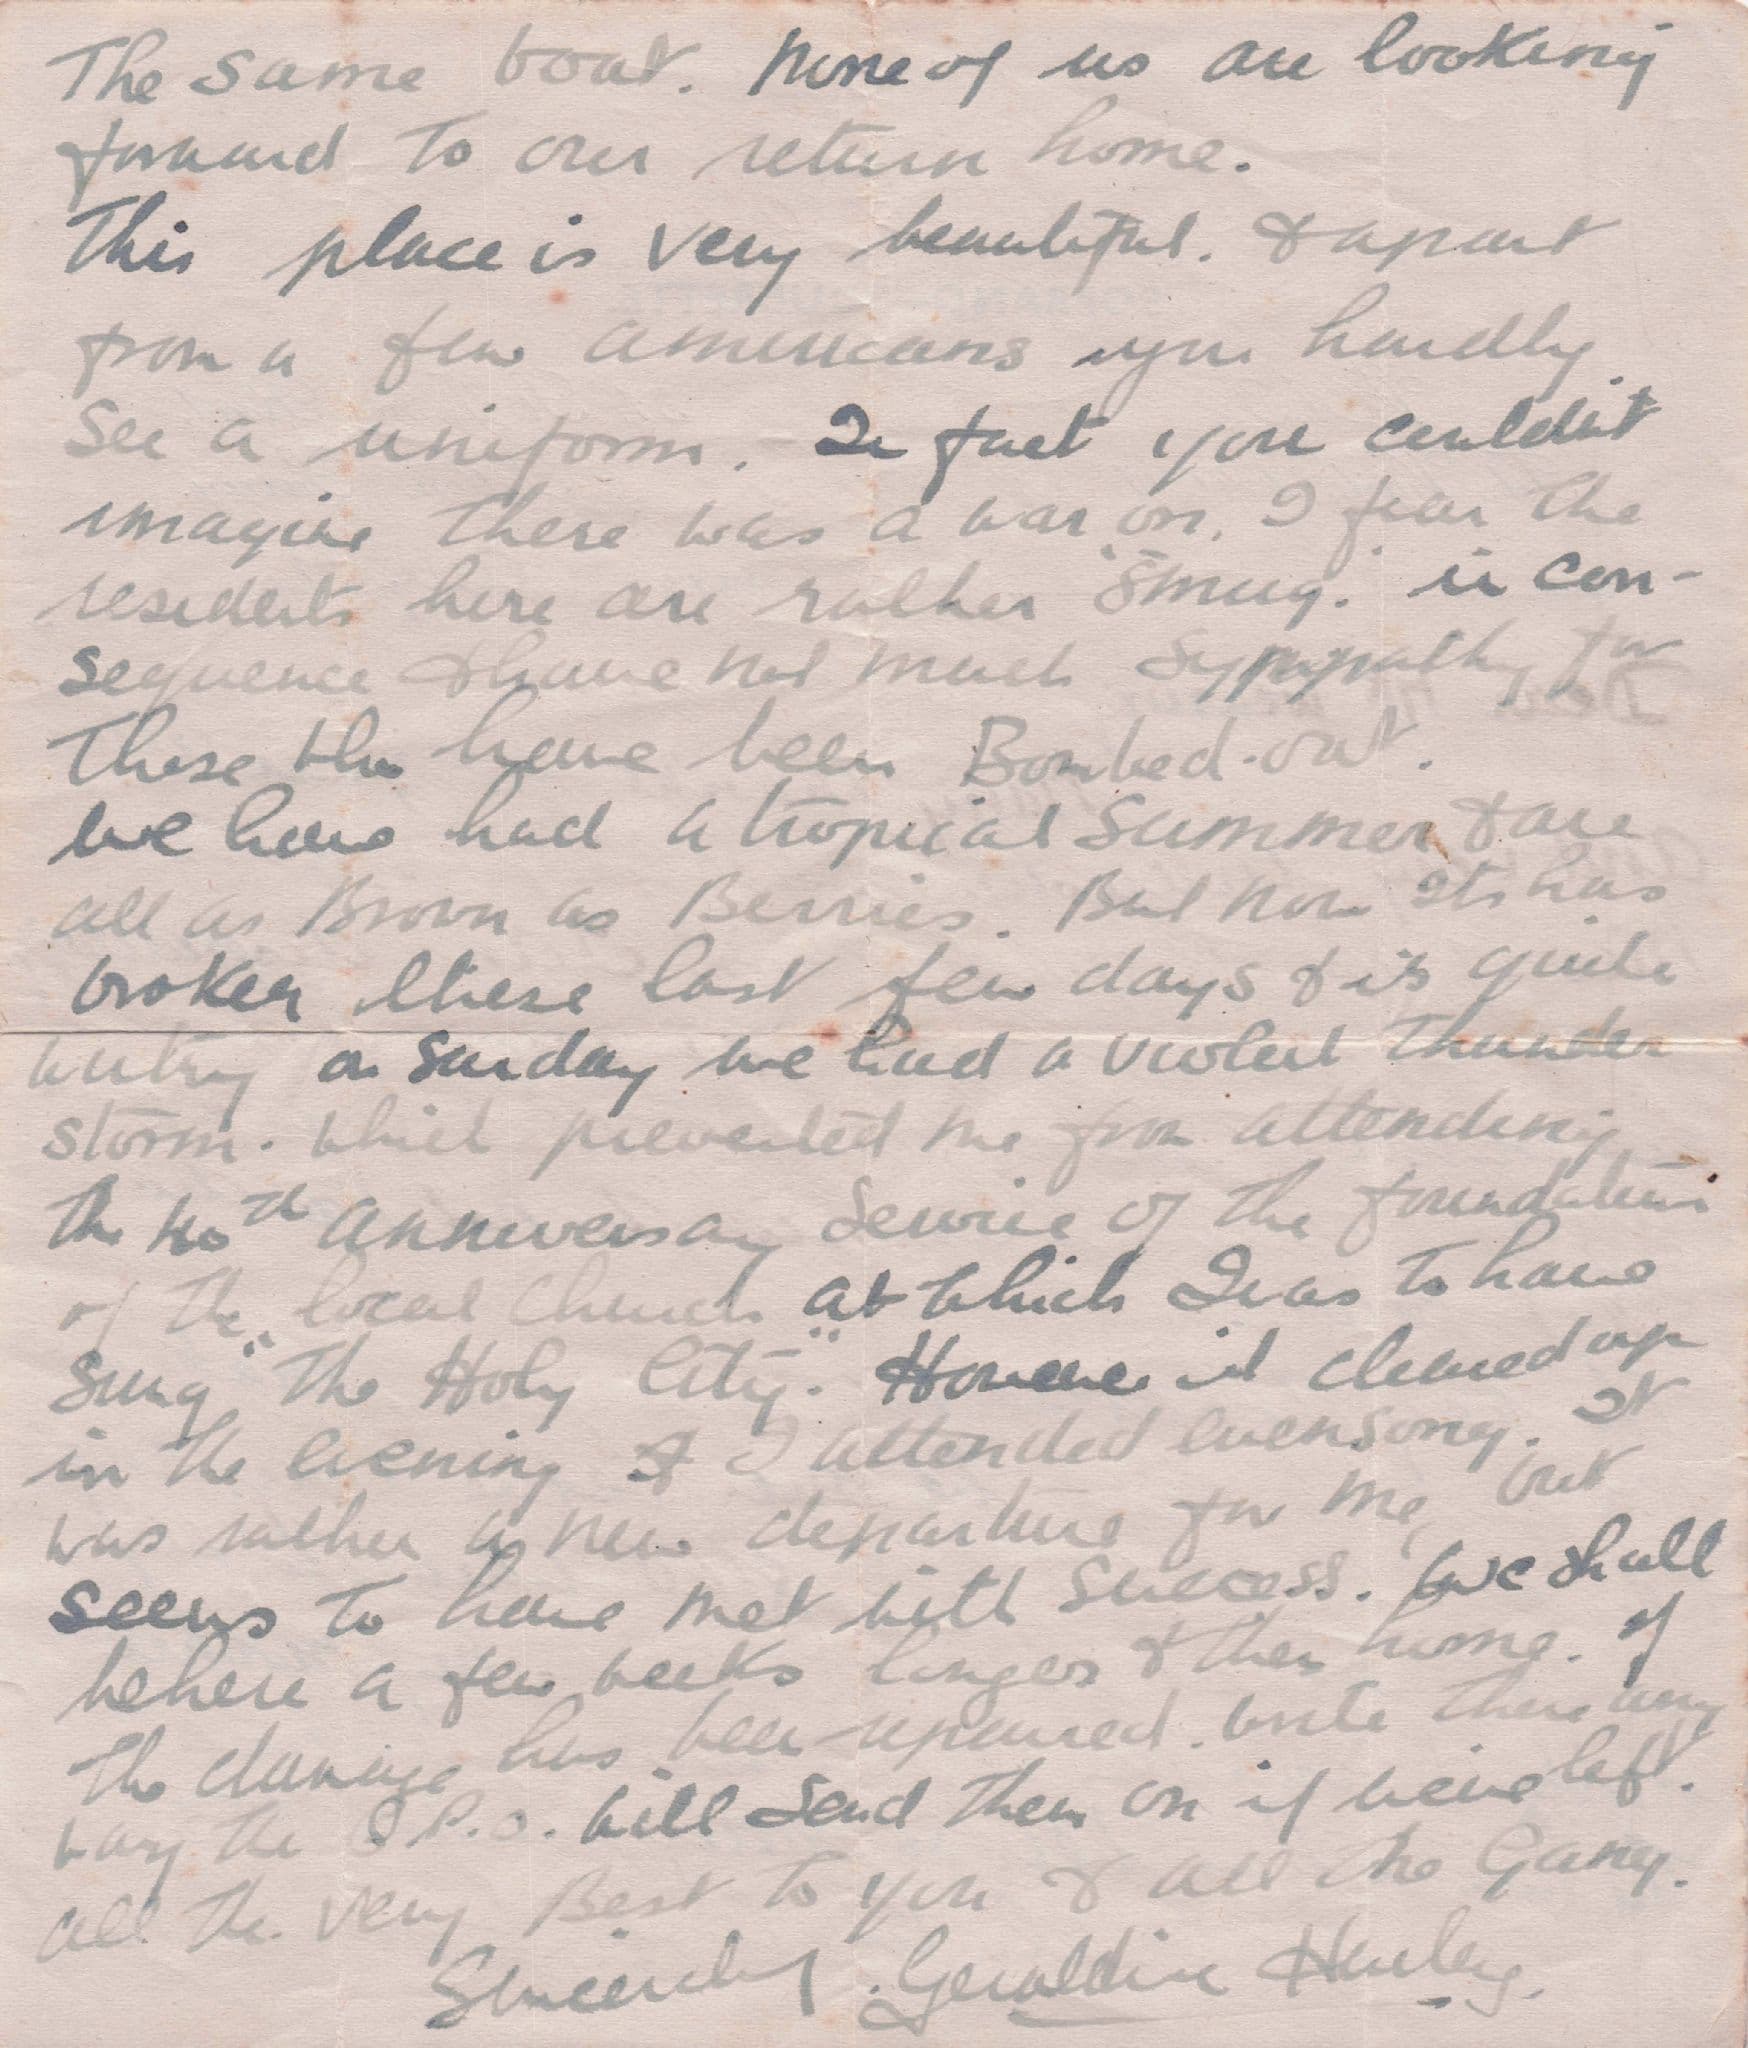 The same boat. None of us are looking
forward to our return home.
This place is very beautiful. & apart
from a few americans you hardly
See a uniform. In fact you couldn't
imagine there was a war on. I fear the
residents here are rather "Smug". in con-
sequence & have not much Sympathy for
These who have been Bombed-out.
we have had a tropical Summer & are
all as Brown as Berries. But now Its has
broken these last few days & its quite
wintry on Sunday we had a violent Thunder
Storm. which prevented me from attending
The anniversary Service of the foundation
of the local Church at which I was to have
Sung "The Holy City". However it cleared up
in the evening & I attended evensong. It
was rather a new departure for me, but
seems to have met with Success. We shall
be here a few weeks longer & then home. if
The damage has been repaired. write there any
way the G.P.O. will Send them on if weive left.
all the very Best to you & all the Gang.
Sincerely. Geraldine